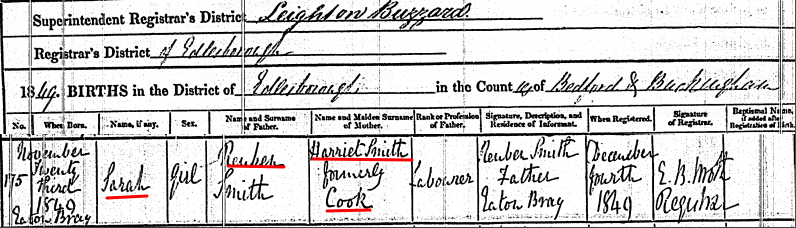 Superintendent Registrar's District Leighton Buzzard.
Registrar's District of Edlesborough
1849. BIRTHS in the District of Edlesborough in the County of Bedford & Buckingham
No. When Born. Name, if any. Sex. Name and Surname of Father. Name and Maiden Surname of Mother. Rank or Profession of Father. Signature, Description, and Residence of Informant. When Registered. Signature of Registrar. Baptismal Name, if added after Registration of Birth.
175 November Twenty Third 1849 Eaton Bray Sarah girl Reuben Smith Harriet Smith formerly Cook Labourer Reuber Smith Father Eaton Bray December fourth 1849 E. B. Mott Registrar